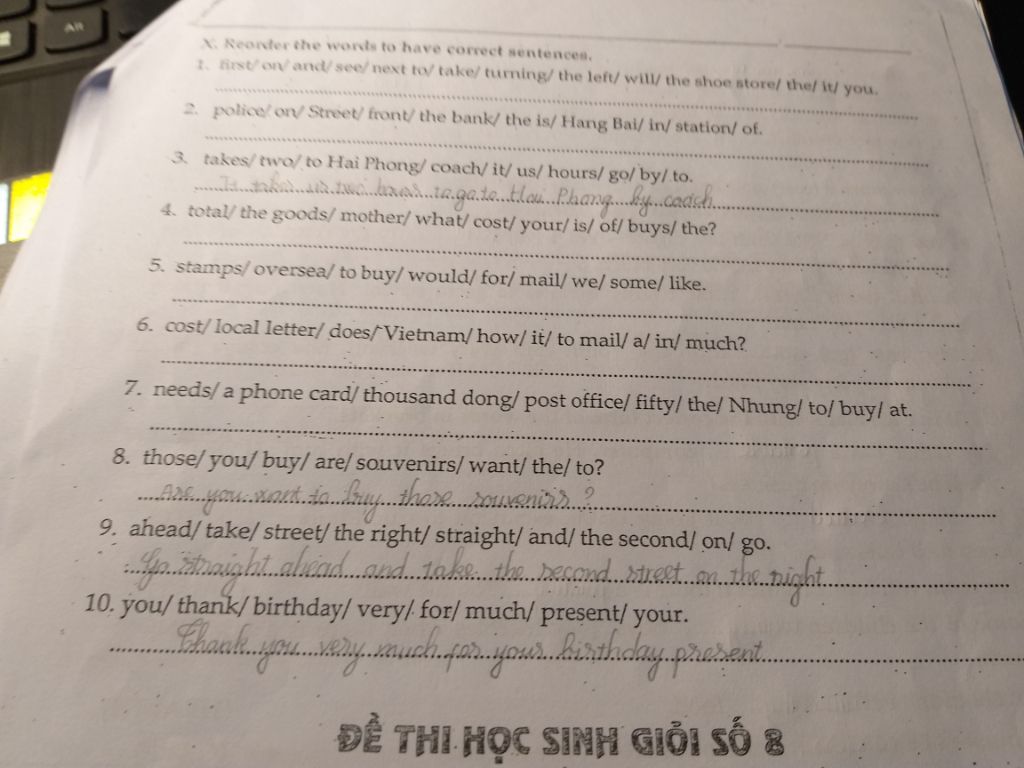 Alt
X. Reorder the words to have correct sentences.
1. first/ on/ and/ see/ next to/ take/ turning/ the left/ will/ the shoe store/ the/ it/ you.
2. police/ on/ Street/ front/ the bank/ the is/ Hang Bai/ in/ station/ of.
3. takes/ two/ to Hai Phong/ coach/ it/ us/ hours/ go/ by/ to.
It takes us two hours to go to Hai Phong by coach
4. total/ the goods/ mother/ what/ cost/ your/ is/ of/ buys/ the?
5. stamps/ oversea/ to buy/ would/ for/ mail/ we/ some/ like.
6. cost/ local letter/ does/ Vietnam/ how/ it/ to mail/ a/ in/ much?
7. needs/ a phone card/ thousand dong/ post office/ fifty/ the/ Nhung/ to/ buy/ at.
8. those/ you/ buy/ are/ souvenirs/ want/ the/ to?
Are you want to buy those souvenirs ?
9. ahead/ take/ street/ the right/ straight/ and/ the second/ on/ go.
Go straight ahead and take the second street on the right
10. you/ thank/ birthday/ very/ for/ much/ present/ your.
Thank you very much for your birthday present
ĐỀ THI HỌC SINH GIỎI SỐ 8